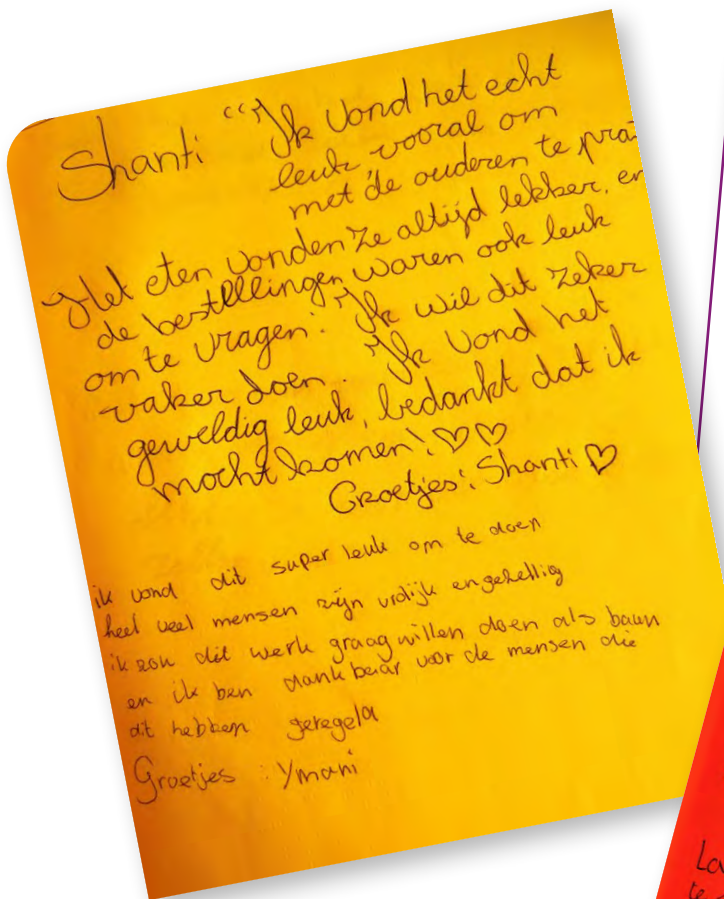 Shanti "Ik vond het echt
leuk vooral om
met de ouderen te pra
Het eten vonden ze altijd lekker, en
de bestllingen waren ook leuk
om te vragen. Ik wil dit zeker
vaker doen. Ik vond het
geweldig leuk, bedankt dat ik
mocht komen! ♡♡
Groetjes: Shanti ♡
ik vond dit super leuk om te doen
heel veel mensen zijn vrolijk en gezellig
ik zou dit werk graag willen doen als baan
en ik ben dankbaar voor de mensen die
dit hebben geregeld
Groetjes : Ymani